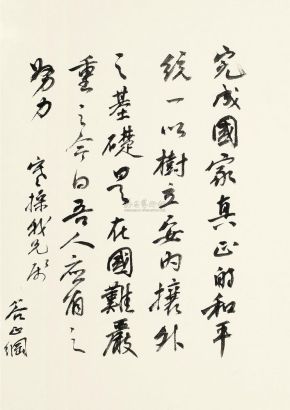 完成國家真正的和平
統一以樹立安內攘外
之基礎是在國難嚴
重之今日吾人应有之
努力
寒操我兄屬
谷正綱